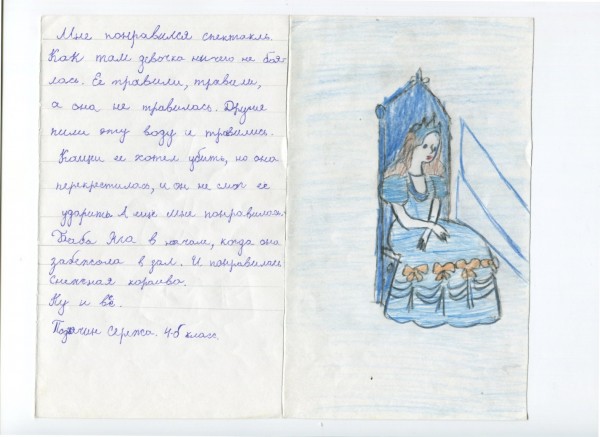 Мне понравился спектакль.
Как там девочка ничего не боя-
лась. Её травили, травили,
а она не травилась. Другие
пили эту воду и травились.
ее хотел убить, но она
перекрестилась, и он не смог ее
ударить. А еще мне понравилась
Баба Яга в начале, когда она
в зал. И понравилась
снежная королева.
Ну и всё.
Сережа. 4-б класс.